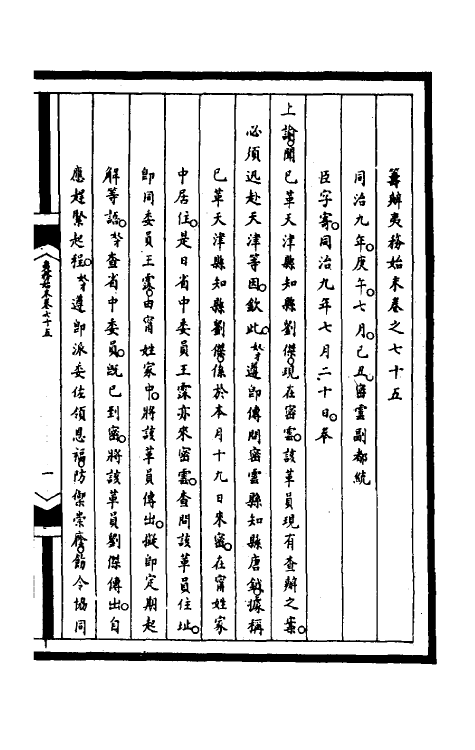 籌辦夷務始末卷之七十五
同治九年。庚午。七月。己丑。密雲副都統
臣字寄。同治九年七月二十日。奉
上諭。聞已革天津縣知縣劉傑。現在密雲。該革員現有查辦之案。
必須迅赴天津等因。欽此。奴才遵卽傳問密雲縣知縣唐鉞。據稱
已革天津縣知縣劉傑。係於本月十九日來密。在甯姓家
中居住。是日省中委員王霖亦來密雲。查問該革員住址。
卽同委員王霖。由甯姓家中。將該革員傳出。擬卽定期起
解等語。奴才查省中委員。旣已到密。將該革員劉傑傳出。自
應趕緊起程。奴才遵卽派委佐領恩福。防禦崇廕。飭令協同
夷務始末卷七十五
一